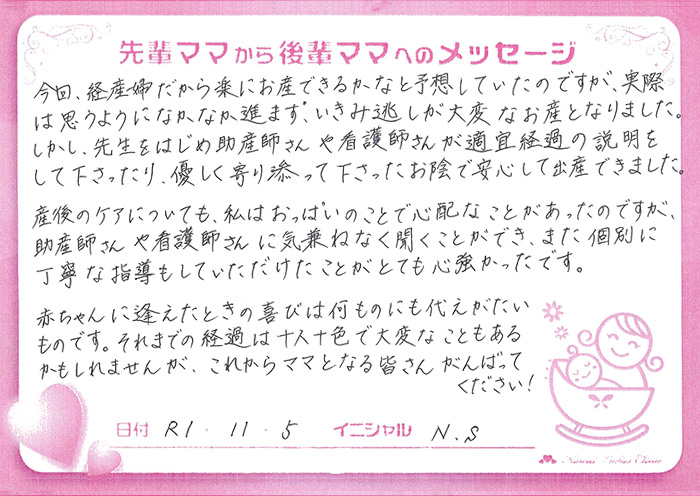 先輩ママから後輩ママへのメッセージ
今回、経産婦だから楽にお産できるかなと予想していたのですが、実際
は思うようになかなか進まず、いきみ逃しが大変なお産となりました。
しかし、先生をはじめ助産師さんや看護師さんが適宜経過の説明を
して下さったり、優しく寄り添って下さったお陰で安心して出産できました。
産後のケアについても、私はおっぱいのことで心配なことがあったのですが、
助産師さんや看護師さんに気兼ねなく聞くことができ、また個別に
丁寧な指導もしていただけたことがとても心強かったです。
赤ちゃんに逢えたときの喜びは何ものにも代えがたい
ものです。それまでの経過は十人十色で大変なこともある
かもしれませんが、これからママとなる皆さんがんばって
ください!
日付 R1・11・5 イニシャル N.S